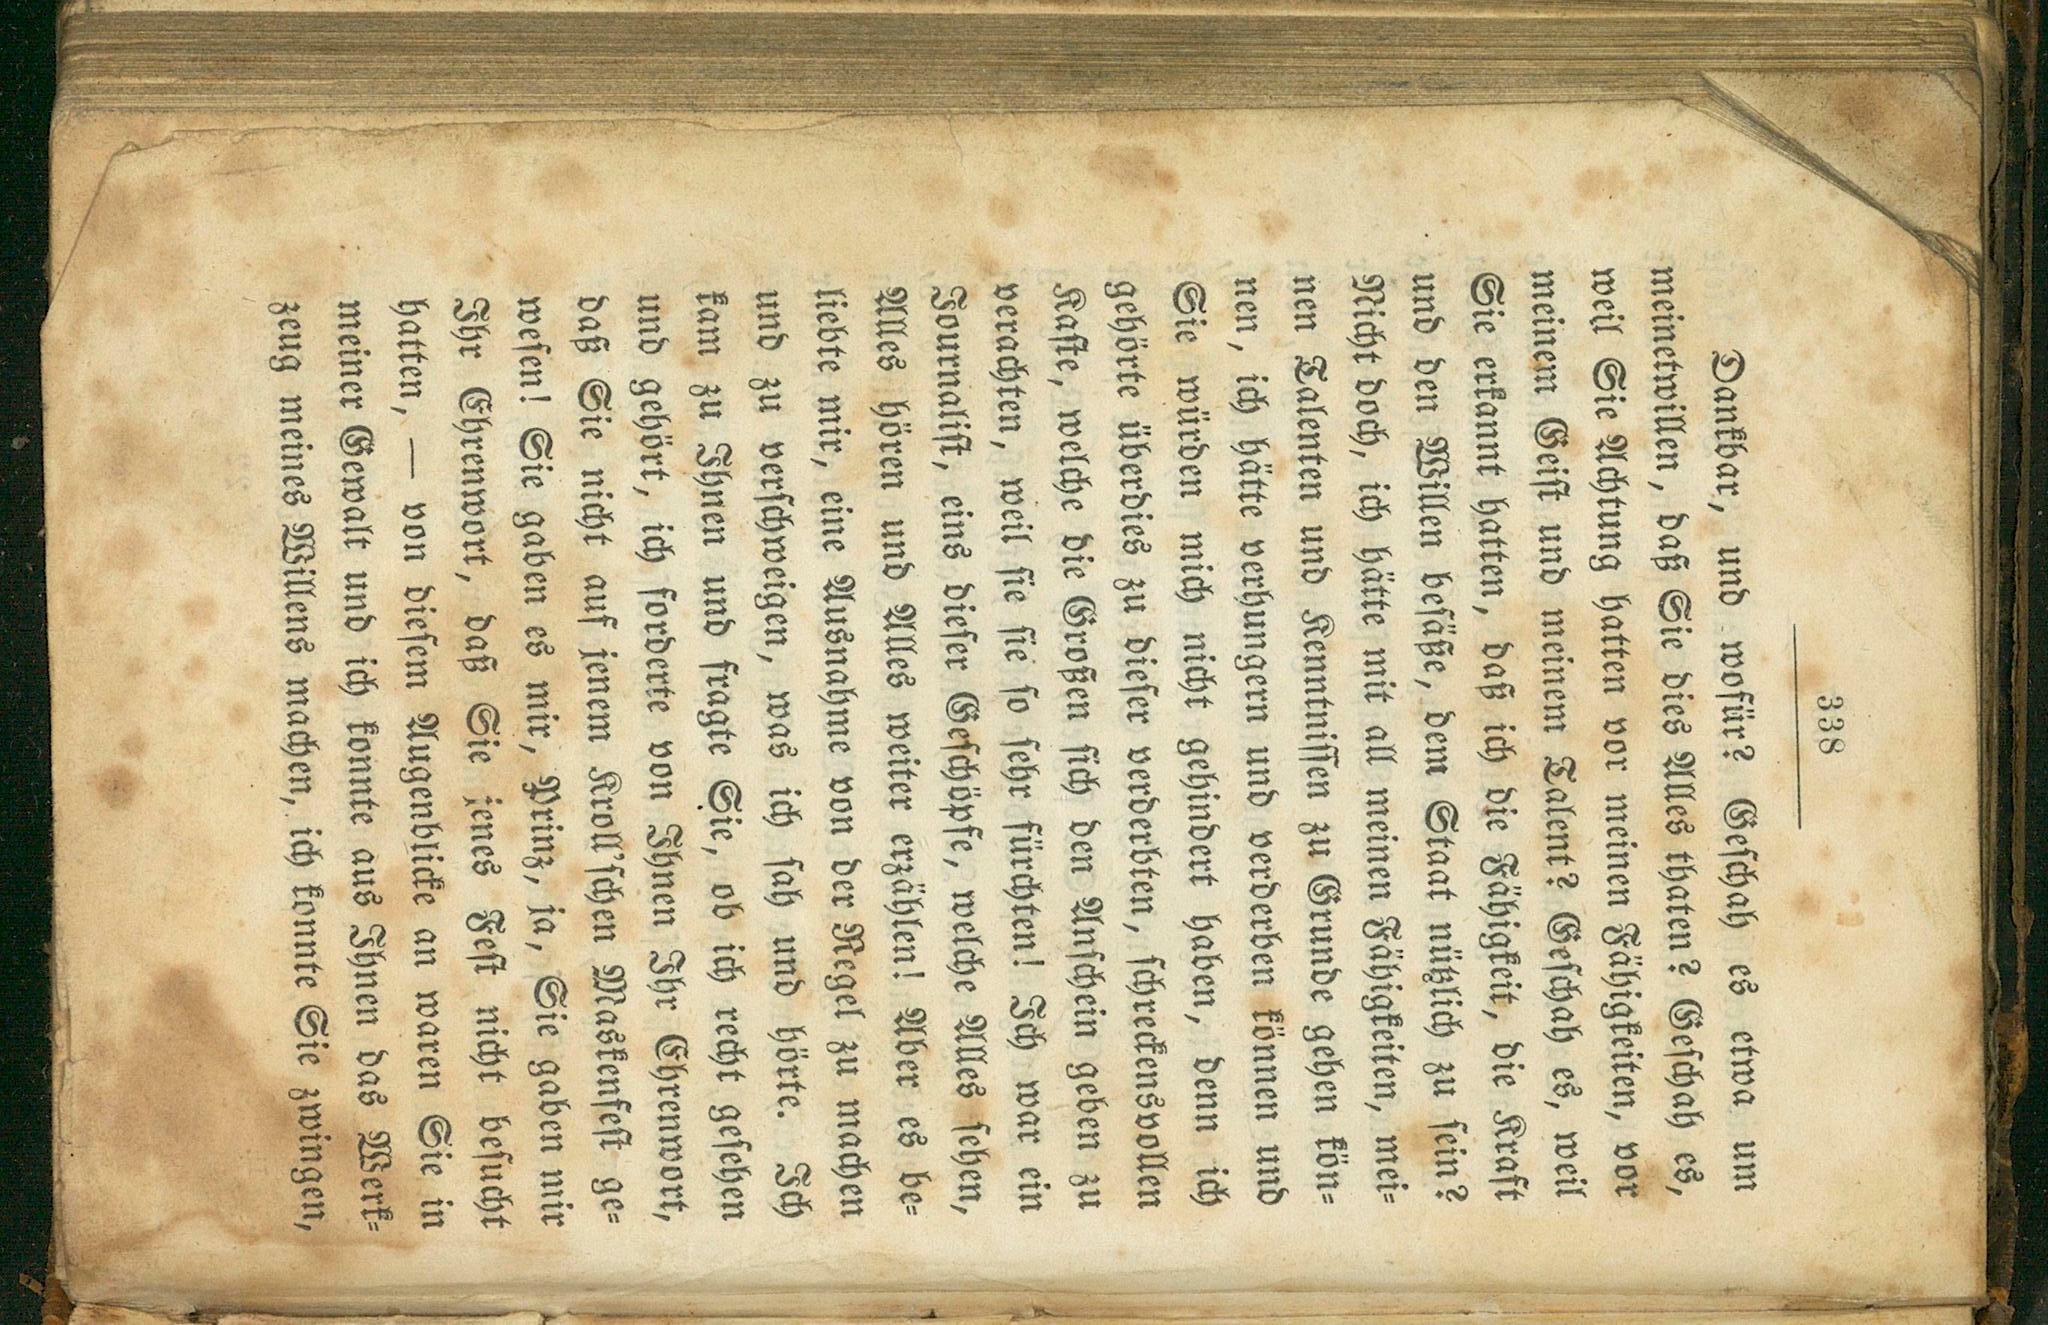 338
Dankbar, und wofür? Geschah es etwa um
meinetwillen, daß Sie dies Alles thaten? Geschah es,
weil Sie Achtung hatten vor meinen Fähigkeiten, vor
meinem Geist und meinem Talent? Geschah es, weil
Sie erkannt hatten, daß ich die Fähigkeit, die Kraft
und den Willen besäße, dem Staat nützlich zu sein?
Nicht doch, ich hätte mit all meinen Fähigkeiten, mei-
nen Talenten und Kenntnissen zu Grunde gehen kön-
nen, ich hätte verhungern und verderben können und
Sie würden mich nicht gehindert haben, denn ich
gehörte überdies zu dieser verderbten, schreckensvollen
Kaste, welche die Großen sich den Anschein geben zu
verachten, weil sie sie so sehr fürchten! Ich war ein
Journalist, eins dieser Geschöpfe, welche Alles sehen,
Alles hören und Alles weiter erzählen! Aber es be-
liebte mir, eine Ausnahme von der Regel zu machen
und zu verschweigen, was ich sah und hörte. Ich
kam zu Ihnen und fragte Sie, ob ich recht gesehen
und gehört, ich forderte von Ihnen Ihr Ehrenwort,
daß Sie nicht auf jenem Kroll'schen Maskenfest ge-
wesen! Sie gaben es mir, Prinz, ja, Sie gaben mir
Ihr Ehrenwort, daß Sie jenes Fest nicht besucht
hatten, — von diesem Augenblicke an waren Sie in
meiner Gewalt und ich konnte aus Ihnen das Werk-
zeug meines Willens machen, ich konnte Sie zwingen,